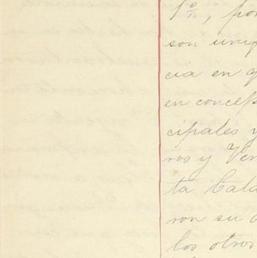 1º, por
son uniq
cia en q
en concep
cipales y
ros y Ven
ta Cata
ron su
los otros